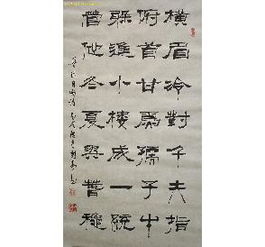 橫眉冷對千夫指
俯首甘爲孺子牛
躲進小樓成一統
管他冬夏與春秋